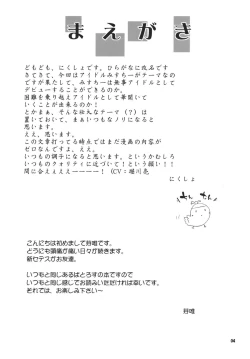 まえがき
どもども、にくしょです。ひらがなに改名です
さてさて、今回はアイドルみすちーがテーマなの
ですが果たして、みすちーは無事アイドルとして
デビューすることができるのか。
困難を乗り越えアイドルとして華開いて
いくことが出来るのか！
とかまぁ、そんな壮大なテーマ（？）は
置いておいて、まぁいつものなノリになると
思います。
ええ、思います。
この文章打ってる時点ではまだ漫画の内容が
ゼロなんですよ。ええ。
いつもの調子になると思います。というかむしろ
いつものクォリティに近づいて！という願い！！
間に合えぇぇーーーー！（CV：堀川亮
にくしょ
こんにちは初めまして狩唯です。
どうにも頭痛が痛い日々が続きます。
新セデスがお友達。
いつもと同じあるぱとろすの本ですので
いつもと同じ感じでお読みいただければ幸いです。
それでは、お楽しみ下さい～